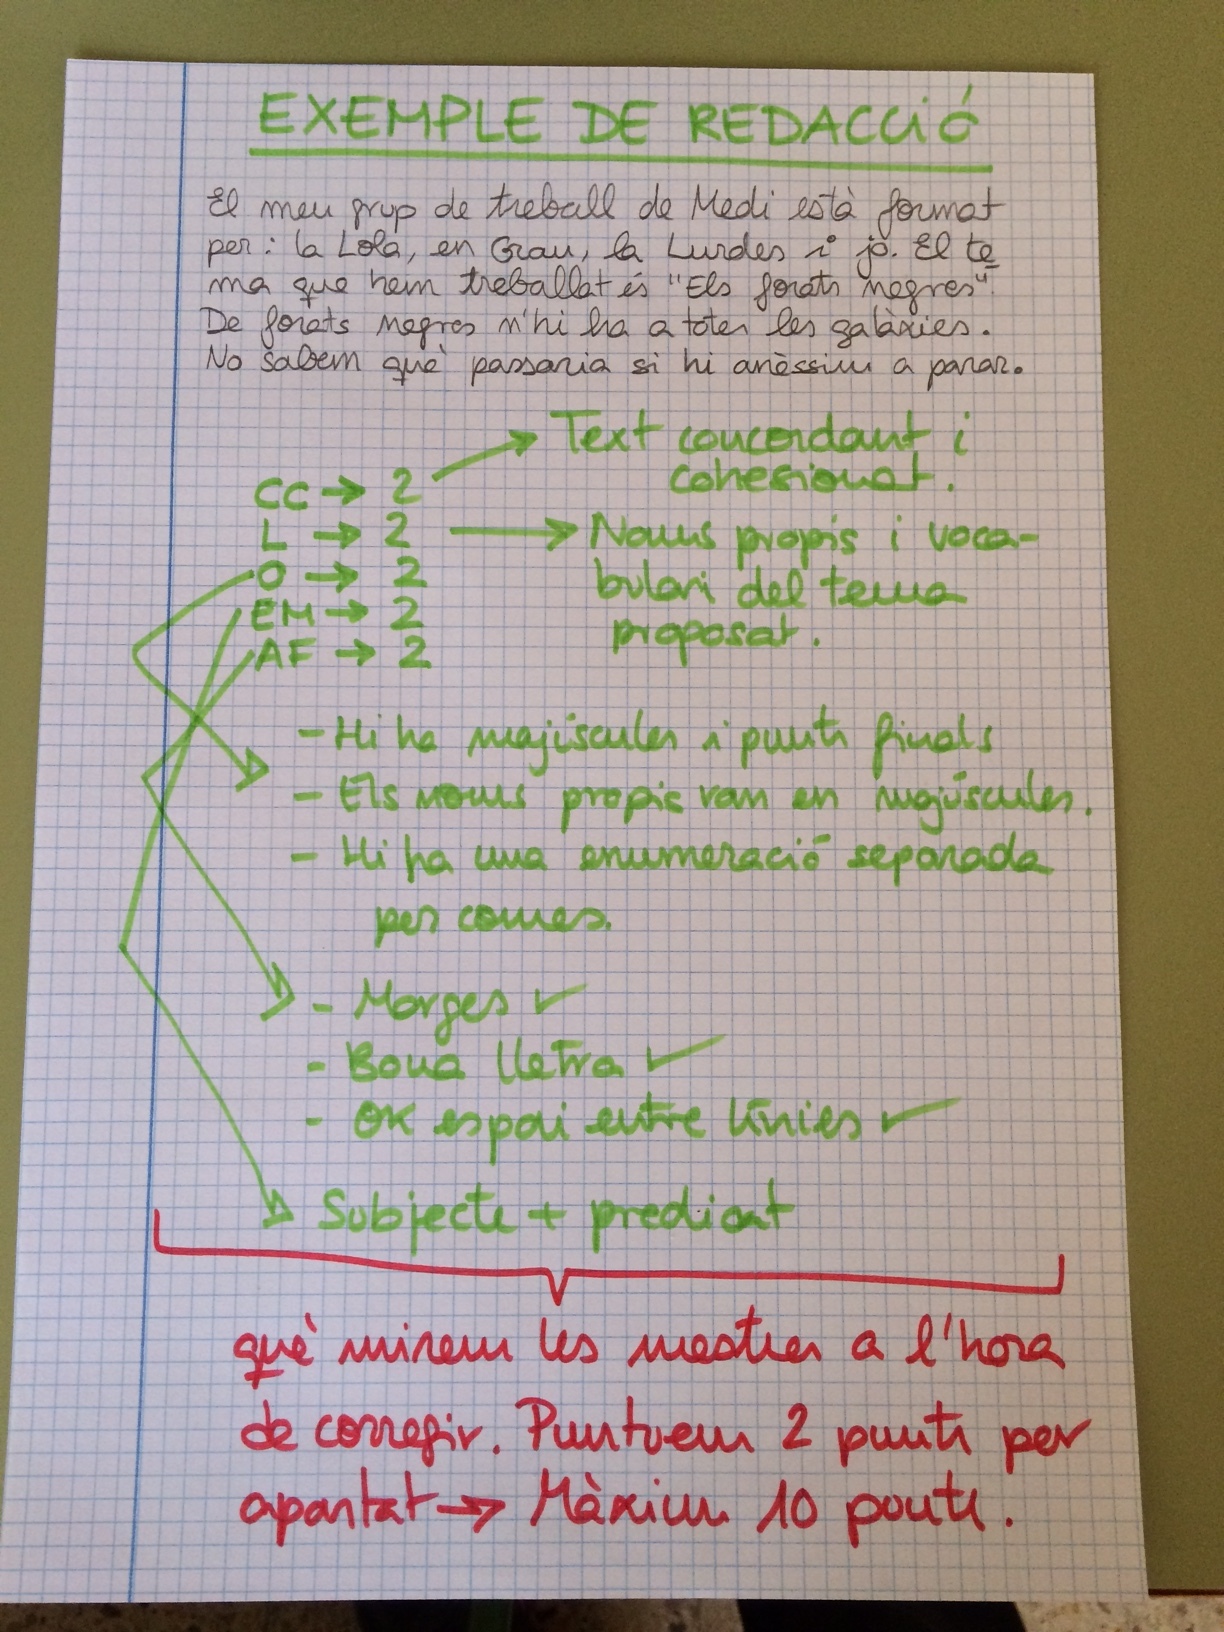 EXEMPLE DE REDACCIÓ
El meu grup de treball de Medi està format
per: la Lola, en Grau, la Lurdes i jo. El te
ma que hem treballat és "Els forats negres".
De forats negres n'hi ha a totes les galàxies.
No sabem què passaria si hi anèssim a parar.
CC → 2 → Text concordant i
cohesionat.
L → 2 → Noms propis i voca-
bulari del tema
proposat.
O → 2
EM → 2
AF → 2
- Hi ha majúscules i punts finals
- Els noms propis van en majúscules.
- Hi ha una enumeració separada
per comes.
- Marges ✓
- Bona lletra ✓
- OK espai entre línies ✓
Subjecte + predicat
què mirem les mestres a l'hora
de corregir. Puntuem 2 punts per
apartat → Màxim 10 punts.